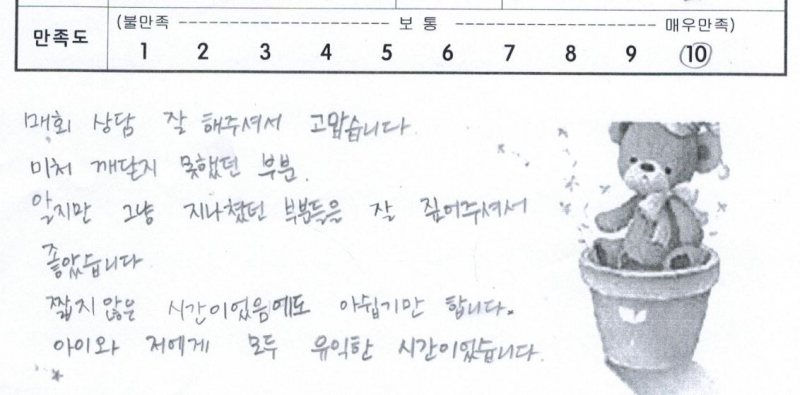 만족도
(불만족 ---------------------- 보 통 ---------------------- 매우만족)
1 2 3 4 5 6 7 8 9 10
매회 상담 잘 해주셔서 고맙습니다.
미처 깨달지 못했던 부분.
알지만 그냥 지나쳤던 부분들을 잘 짚어주셔서
좋았습니다
짧지 않은 시간이었음에도 아쉽기만 합니다.
아이와 저에게 모두 유익한 시간이었습니다.